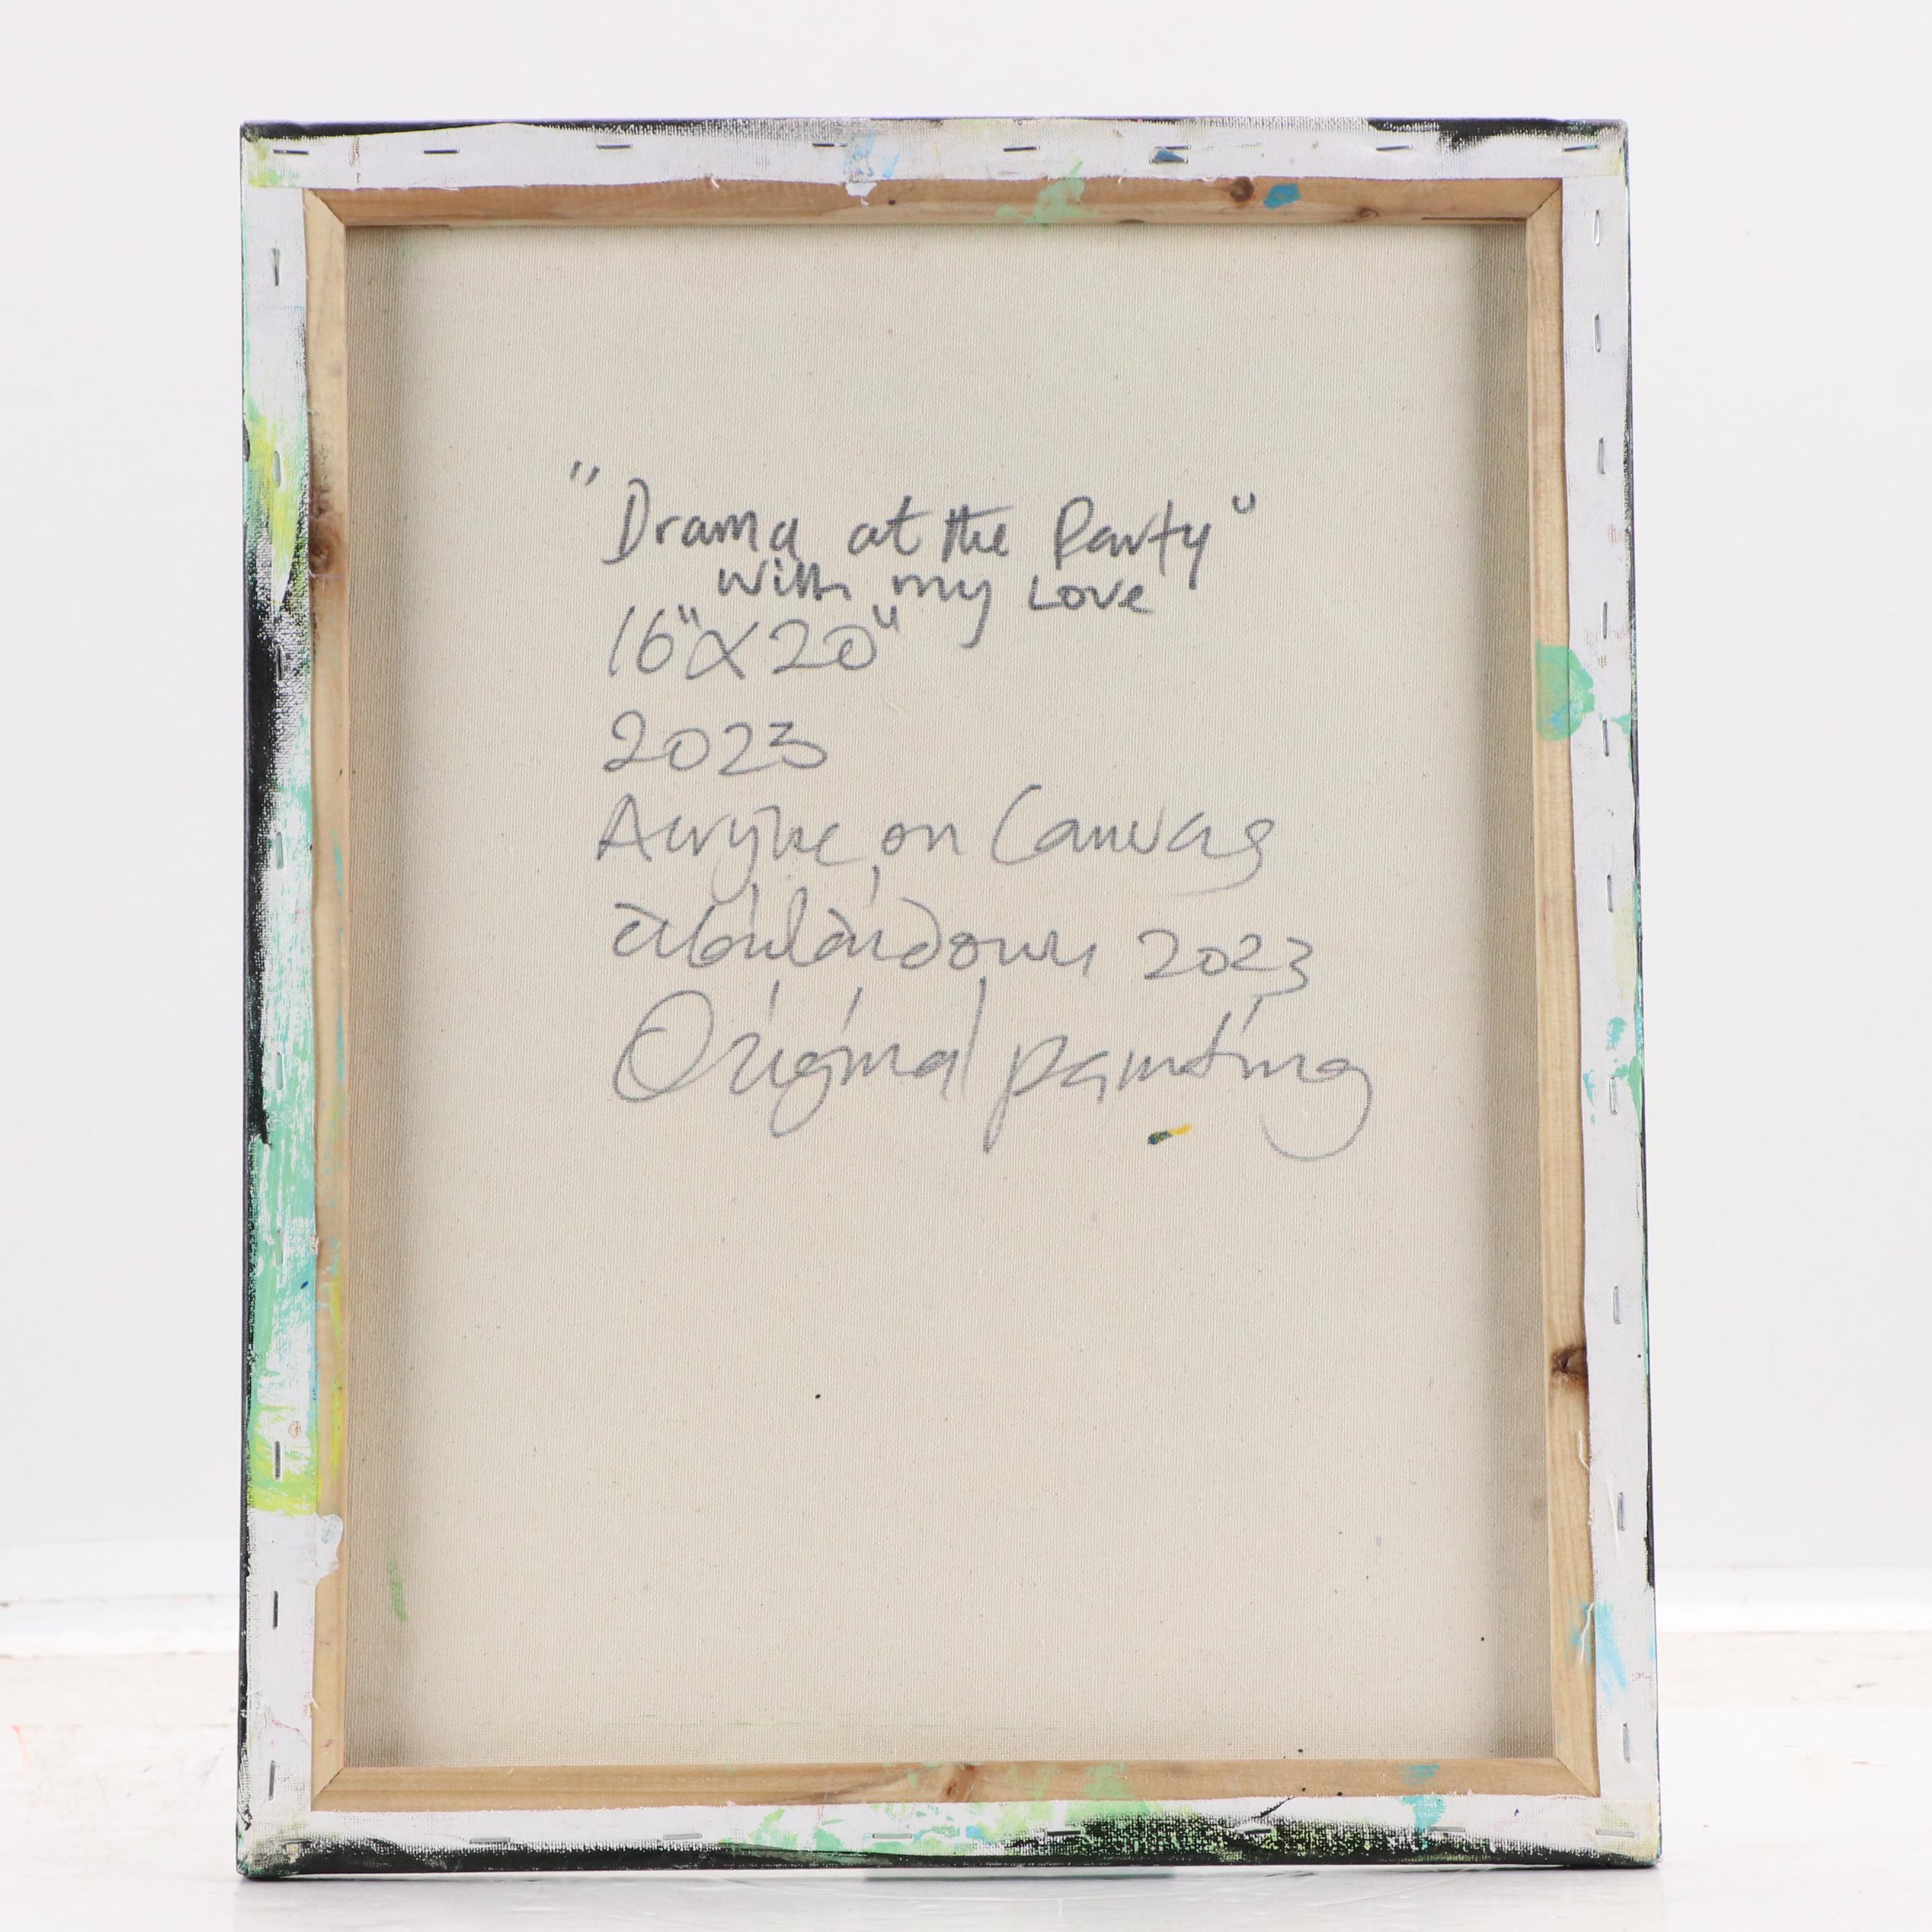 "Drama at the Party"
with my Love
16"X20"
2023
Acrylic on Canvas
2023
Original painting